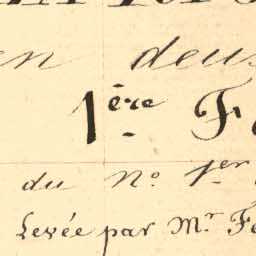 en deux
1ère F
du N° 1er
Levée par Mr Fe